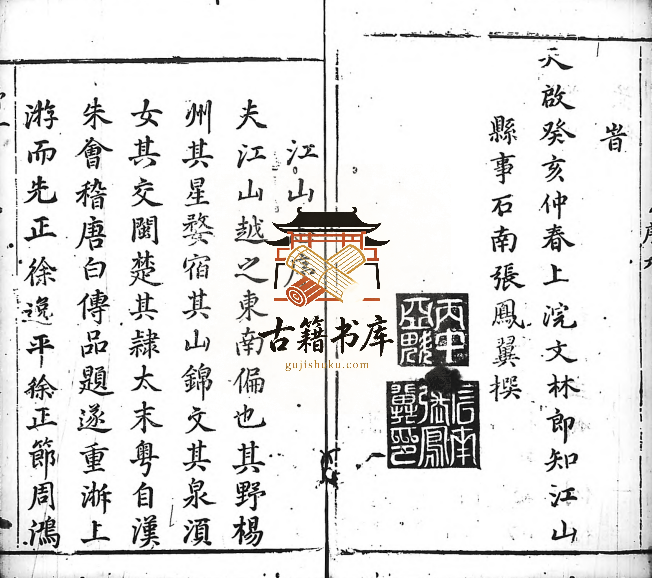 旹
天啟癸亥仲春上浣文林郎知江山
縣事石南張鳳翼撰
江山
夫江山越之東南偏也其野楊
州其星婺宿其山錦文其泉須
女其交閩楚其隸太末粤自漢
朱會稽唐白傳品題遂重浙上
游而先正徐逸平徐正節周鴻
古籍书库
gujishuku.com